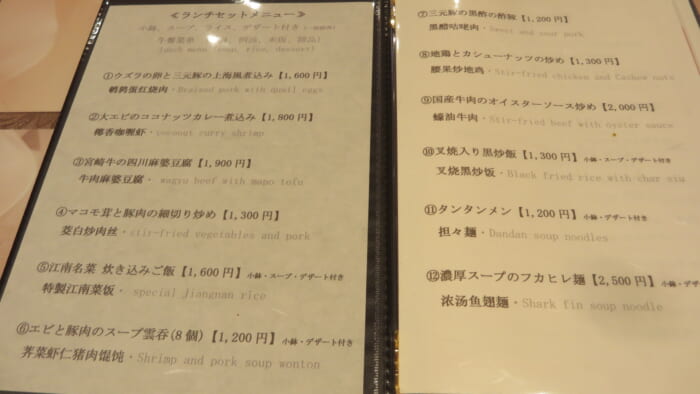 ≪ランチセットメニュー≫
小鉢、スープ、ライス、デザート付き
(Lunch menu soup, rice, dessert)
①ウズラの卵と三元豚の上海風煮込み【1,600円】
鹌鹑蛋红烧肉・Braised pork with quail eggs
②大エビのココナッツカレー煮込み【1,800円】
椰香咖喱虾・coconut curry shrimp
③宮崎牛の四川麻婆豆腐【1,900円】
牛肉麻婆豆腐・wagyu beef with mapo tofu
④マコモ茸と豚肉の細切り炒め【1,300円】
茭白炒肉丝・stir-fried vegetables and pork
⑤江南名菜 炊き込みご飯【1,600円】小鉢・スープ・デザート付き
特製江南菜饭・special jiangnan rice
⑥エビと豚肉のスープ雲呑(8個)【1,200円】小鉢・デザート付き
荠菜虾仁猪肉馄饨・Shrimp and pork soup wonton
⑦三元豚の黒酢の酢豚【1,200円】
黒醋咕咾肉・Sweet and sour pork
⑧地鶏とカシューナッツの炒め【1,300円】
腰果炒地鸡・Stir-fried chicken and Cashew nuts
⑨国産牛肉のオイスターソース炒め【2,000円】
蠔油牛肉・Stir-fried beef with oyster sauce
⑩叉焼入り黒炒飯【1,300円】小鉢・スープ・デザート付き
叉烧黑炒饭・Black fried rice with char siu
⑪タンタンメン【1,200円】小鉢・デザート付き
担々麺・Dandan soup noodles
⑫濃厚スープのフカヒレ麺【2,500円】小鉢・デザート付き
浓汤鱼翅麺・Shark fin soup noodle